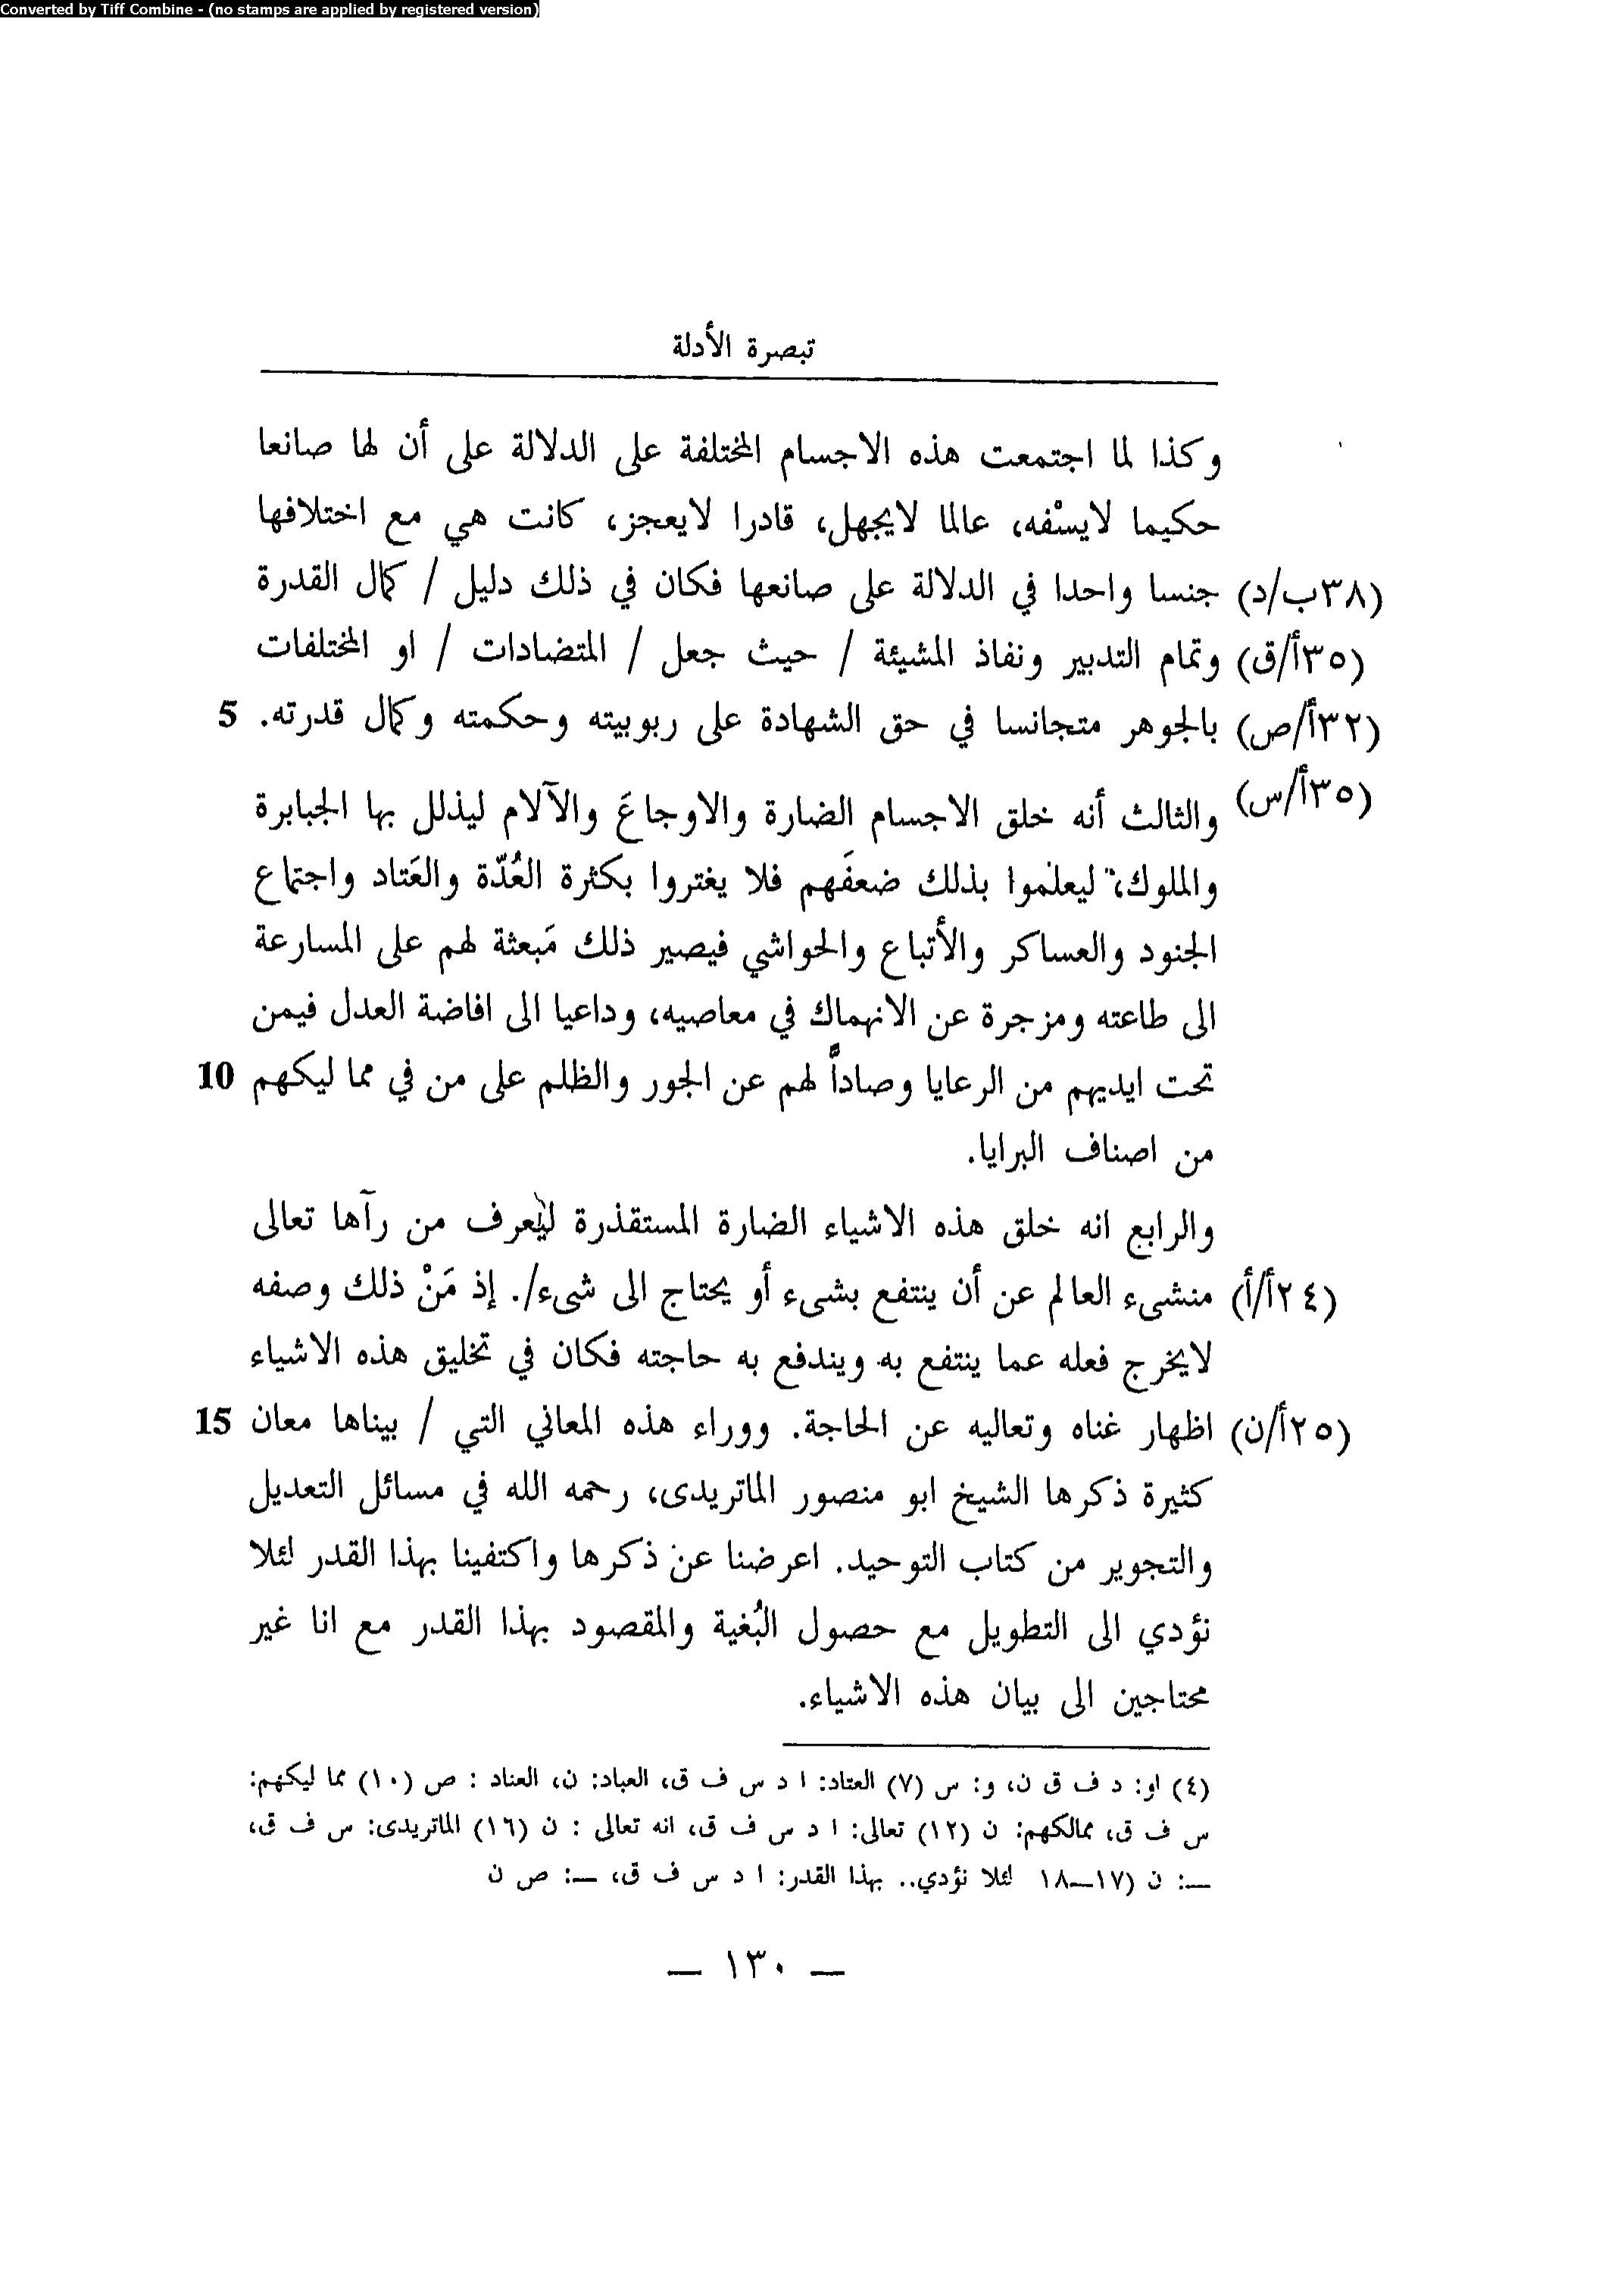 Converted by Tiff Combine - (no stamps are applied by registered version)
تبصرة الأدلة
وكذا لما اجتمعت هذه الاجسام المختلفة على الدلالة على أن لها صانعا
حكيما لايسْفه، عالما لايجهل، قادرا لايعجز، كانت هي مع اختلافها
(٣٨ب/د) جنسا واحدا في الدلالة على صانعها فكان في ذلك دليل / كمال القدرة
(٣٥أ/ق) وتمام التدبير ونفاذ المشيئة / حيث جعل / المتضادات / او المختلفات
(٣٢أ/ص) بالجوهر متجانسا في حق الشهادة على ربوبيته وحكمته وكمال قدرته. 5
(٣٥أ/س) والثالث أنه خلق الاجسام الضارة والاوجاعَ والآلام ليذلل بها الجبابرة
والملوك، ليعلموا بذلك ضعفَهم فلا يغتروا بكثرة العُدّة والعَتاد واجتماع
الجنود والعساكر والأتباع والحواشي فيصير ذلك مَبعثة لهم على المسارعة
الى طاعته ومزجرة عن الانهماك في معاصيه، وداعيا الى افاضة العدل فيمن
تحت ايديهم من الرعايا وصاداً لهم عن الجور والظلم على من في مما ليكهم 10
من اصناف البرايا.
والرابع انه خلق هذه الاشياء الضارة المستقذرة ليُعرف من رآها تعالى
(٢٤أ/أ) منشىء العالم عن أن ينتفع بشىء أو يحتاج الى شىء/. إذ مَنْ ذلك وصفه
لايخرج فعله عما ينتفع به ويندفع به حاجته فكان في تخليق هذه الاشياء
(٢٥أ/ن) اظهار غناه وتعاليه عن الحاجة. ووراء هذه المعاني التي / بيناها معان 15
كثيرة ذكرها الشيخ ابو منصور الماتريدى، رحمه الله في مسائل التعديل
والتجوير من كتاب التوحيد. اعرضنا عن ذكرها واكتفينا بهذا القدر لئلا
نؤدي الى التطويل مع حصول البُغية والمقصود بهذا القدر مع انا غير
محتاجين الى بيان هذه الاشياء.
(٤) او: د ف ق ن، و: س (٧) العتاد: ا د س ف ق، العباد: ن، العناد : ص (١٠) مما ليكهم:
س ف ق، ممالكهم: ن (١٢) تعالى: ا د س ف ق، انه تعالى : ن (١٦) الماتريدى: س ف ق،
—: ن (١٧—١٨ لئلا نؤدي.. بهذا القدر: ا د س ف ق، —: ص ن
— ١٣٠ —